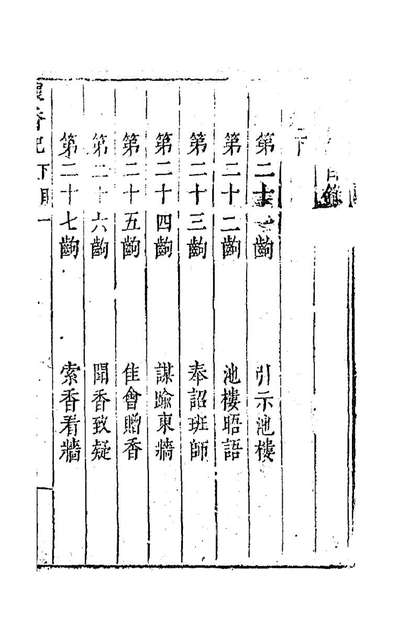 目錄
下
第二十一齣 引示池樓
第二十二齣 池樓晤語
第二十三齣 奉詔班師
第二十四齣 謀踰東牆
第二十五齣 佳會贈香
第二十六齣 聞香致疑
第二十七齣 索香看牆
香記下目 一